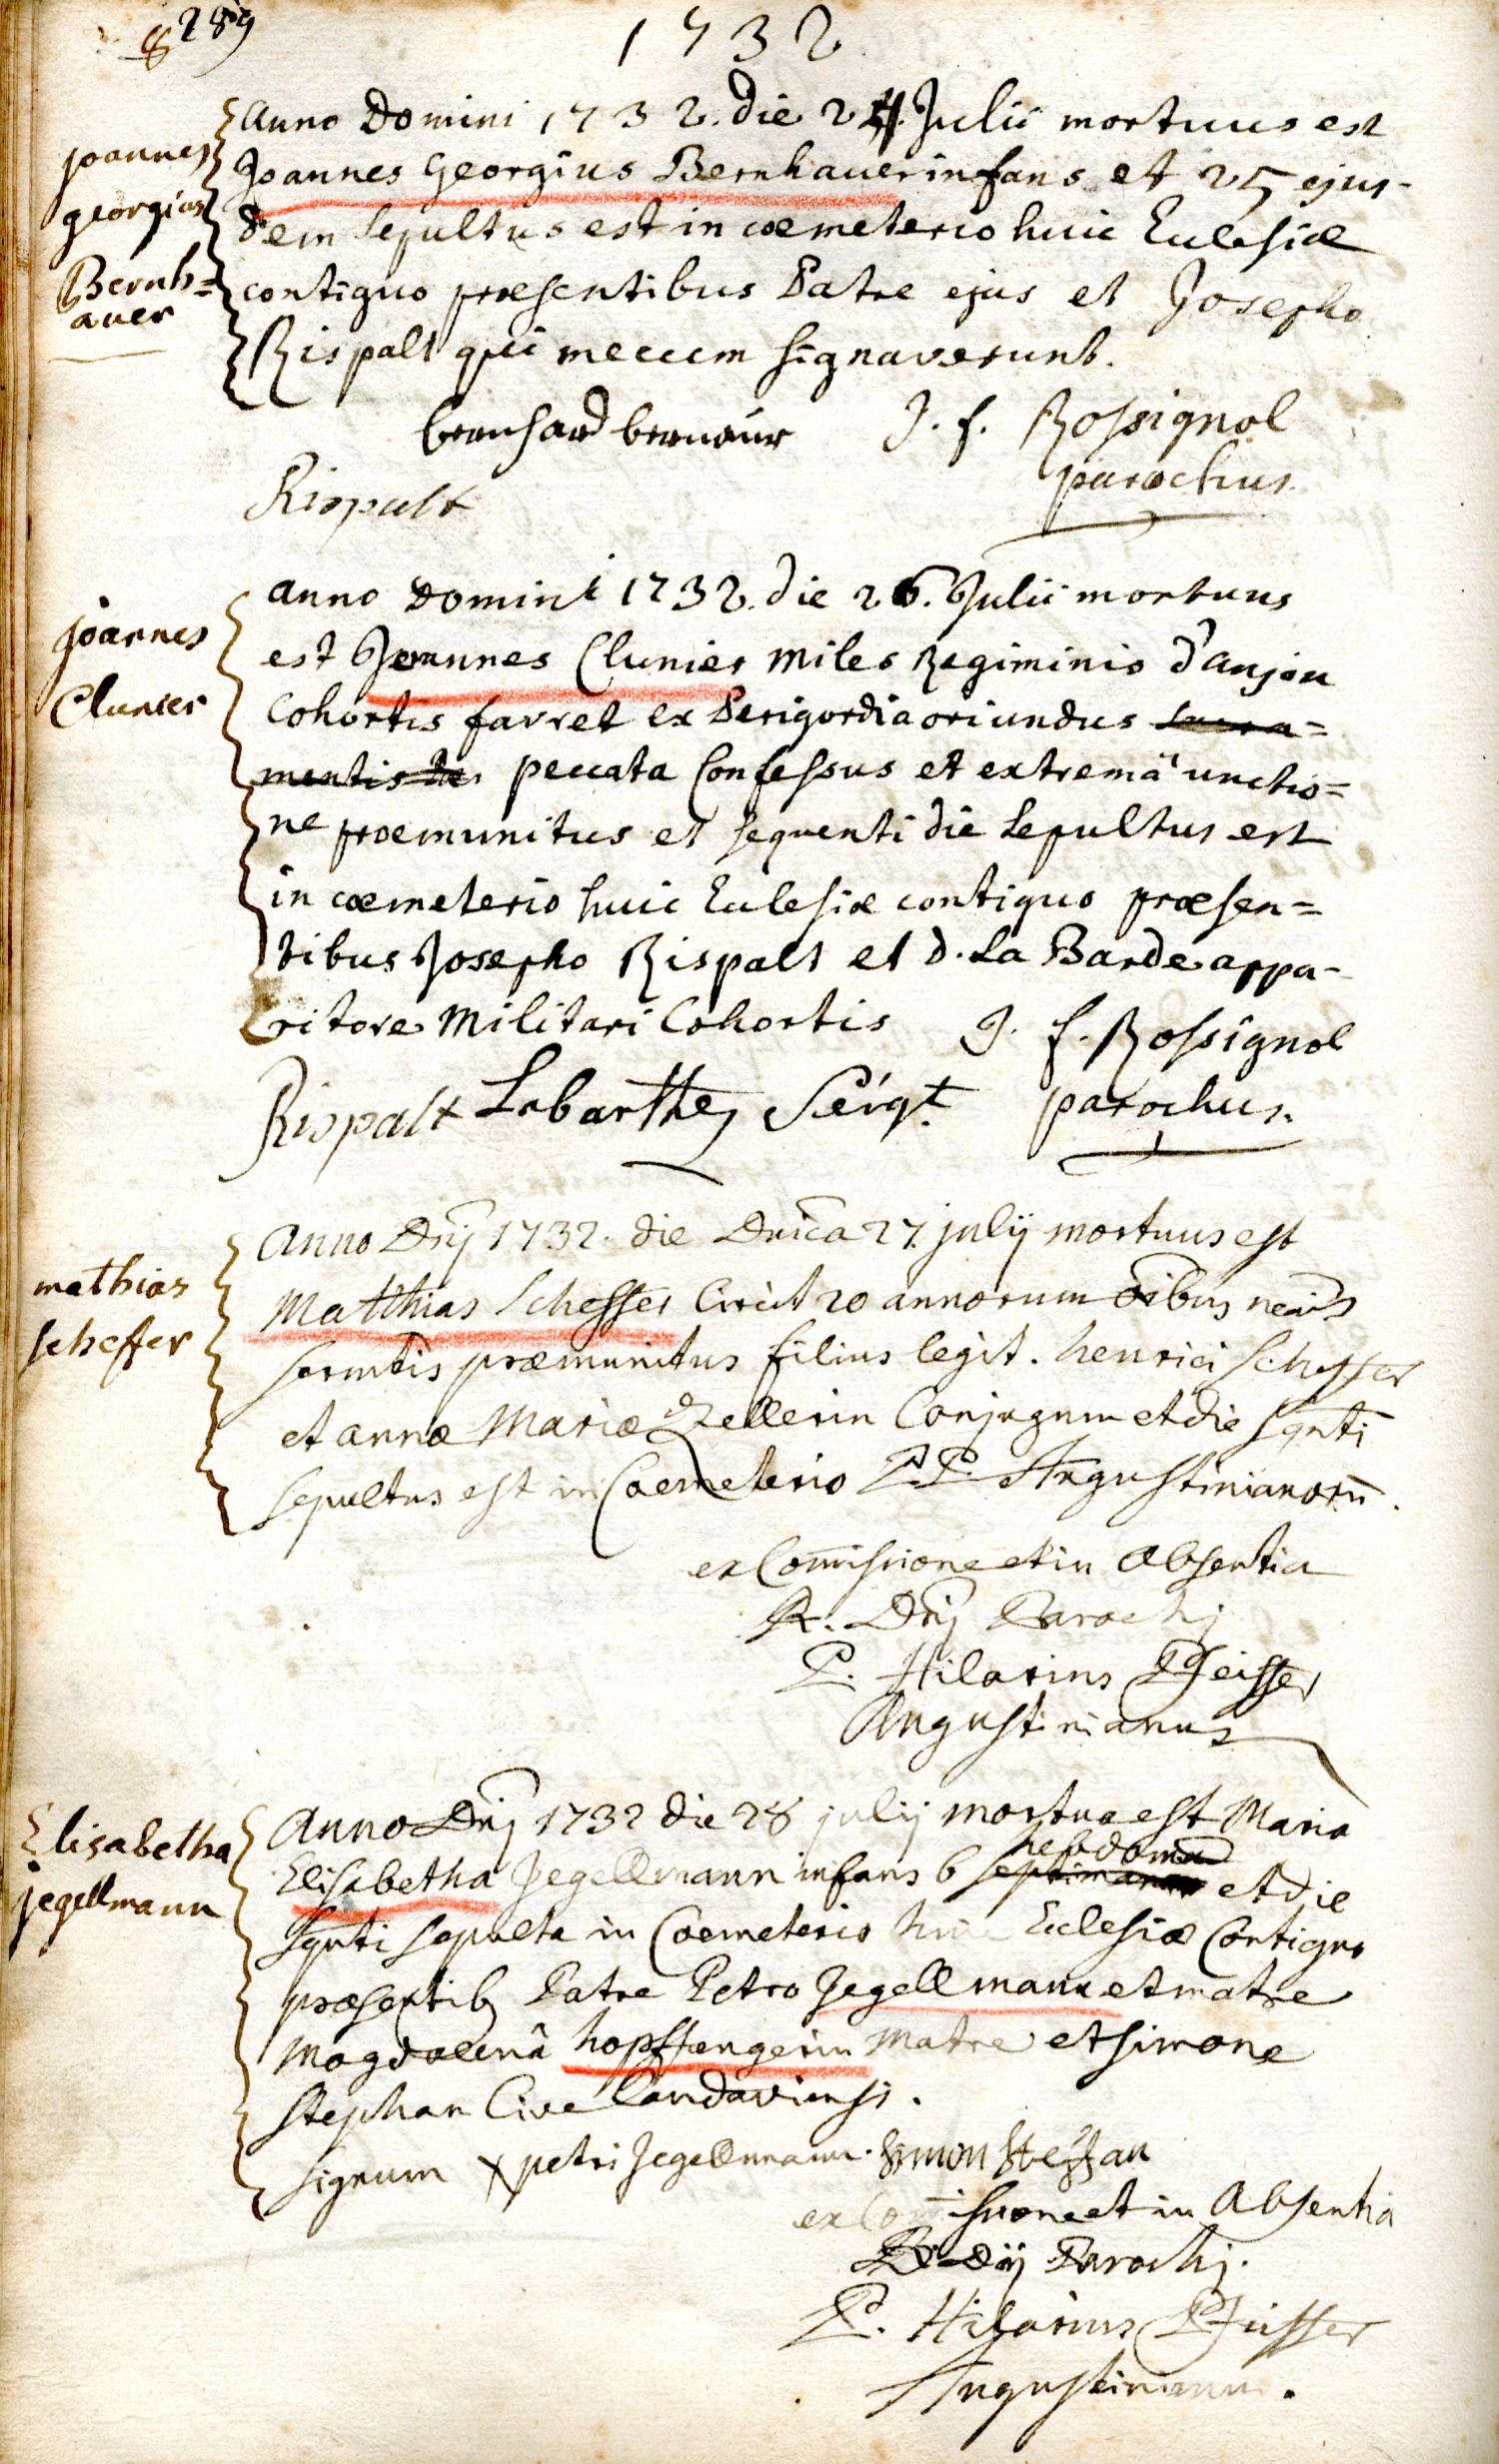 289
1732
Anno Domini 1732. die 24. Julii mortuus est
joannes
Joannes Georgius Bernhauer infans et 25 ejus-
georgius
dem sepultus est in coemeterio huic Ecclesiæ
Bernh=
contiguo præsentibus Patre ejus et Josepho
auer
Rispalt qui mecum signaverunt.
bernhard bernaur J. f. Rossignol
parochus
Rispalt
anno Domini 1732. die 26. Julii mortuus
joannes
est Joannes Clunier miles Regiminis d'anjou
Clunier
Cohortis favret ex Perigordia oriundus sacra=
mentis peccata Confessus et extremâ unctio=
ne præmunitus et sequenti die sepultus est
in coemeterio huic Ecclesiæ contiguo præsen=
tibus Josepho Rispalt et d. La Barde appa-
ritore militari Cohortis J. f. Rossignol
Rispalt Labarthe, Sergt. parochus.
Anno Dnj 1732. die Dnica 27. julij mortuus est
mathias
Matthias Scheffer Circit 20 annorum oibus
scheffer
præmunitus filius legit. henrici Scheffer
et annæ Mariæ Zellerin Conjugum et die sqnti
sepultus est in Coemeterio PP. Augustinianorū.
ex Comissione et in Absentia
R. Dnj Parochj
P. Hilarius Pfeiffer
Augustinianus
Anno Dnj 1732 die 28 julij mortua est Maria
Elisabetha
hebdomad
Elisabetha Jegellmann infans 6 septimanar et die
jegellmann
sqnti sepulta in Coemeterio huic Ecclesiæ Contiguo
præsentib Patre Petro Jegellmann et matre
Magdalenâ hopffengerin Matre et simone
Stephan Cive Landaviensi.
signum x petri Jegellmann. Simon Steffan
ex Comissione et in Absentia
R. Dnj Parochj.
P. Hilarius Pfeiffer
Augustinianus.